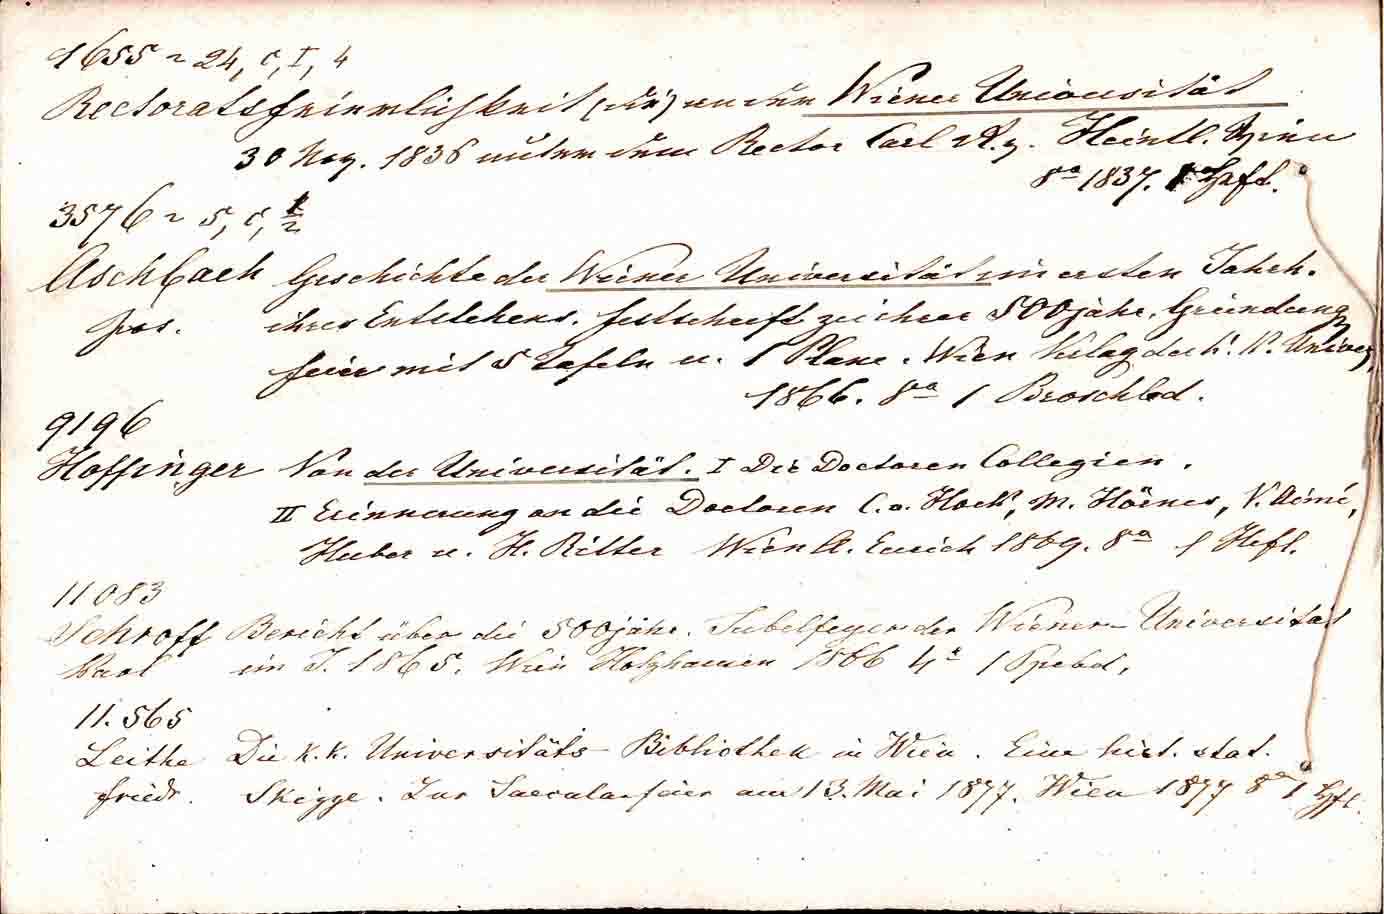 1655 ~ 24, c, I, 4
Rectoratsfeierlichkeit (die) an der Wiener Universität
30 Nov. 1836 unter dem Rector Carl R. v. Heintl. Wien
8ª 1837. 1 Heft.
3576 ~ 5, c, 1/2
Aschbach Geschichte der Wiener Universität im ersten Jahrh.
Jos. ihres Entstehens. Festschrift zu ihrer 500jähr. Gründungs
feier mit 5 Tafeln u. 1 Plane. Wien Verlag der k. k. Univer.
1866. 8ª 1 Broschbd.
9196
Hoffinger Von der Universität. I Die Doctoren Collegien.
II Erinnerung an die Doctoren C. v. Hock, M. Hörnes, V. Aimé,
Huber u. H. Ritter Wien A. Eurich 1869. 8ª 1 Heft.
11083
Schroff Bericht über die 500jähr. Jubelfeyer der Wiener Universität
Karl im J. 1865. Wien Holzhausen 1866 4º 1 Ppebd,
11.565
Leithe Die k. k. Universitäts-Bibliothek in Wien. Eine hist. stat.
Friedr. Skizze. Zur Saecularfeier am 13. Mai 1877. Wien 1877 8ª 1 Hft.